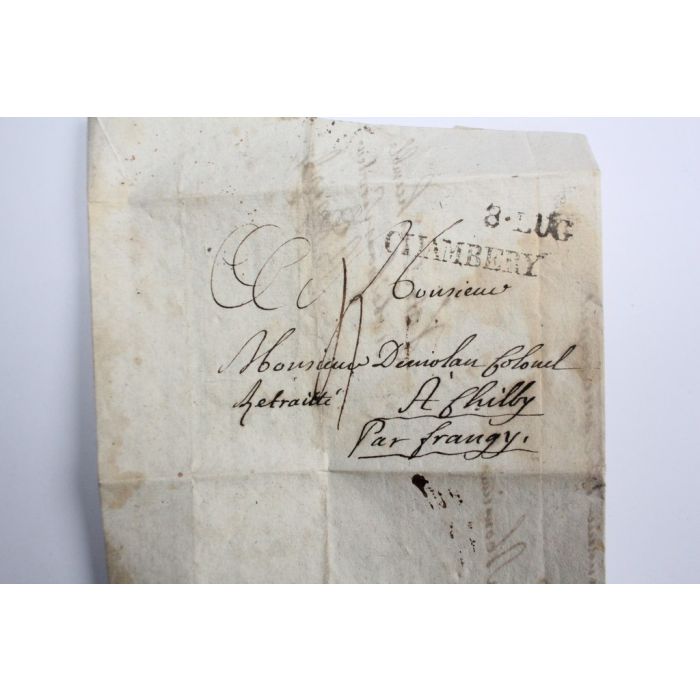 8·LUG
CHAMBERY
Monsieur
Monsieur Demolan Colonel
Retraitté A Chilly
Par frangy.